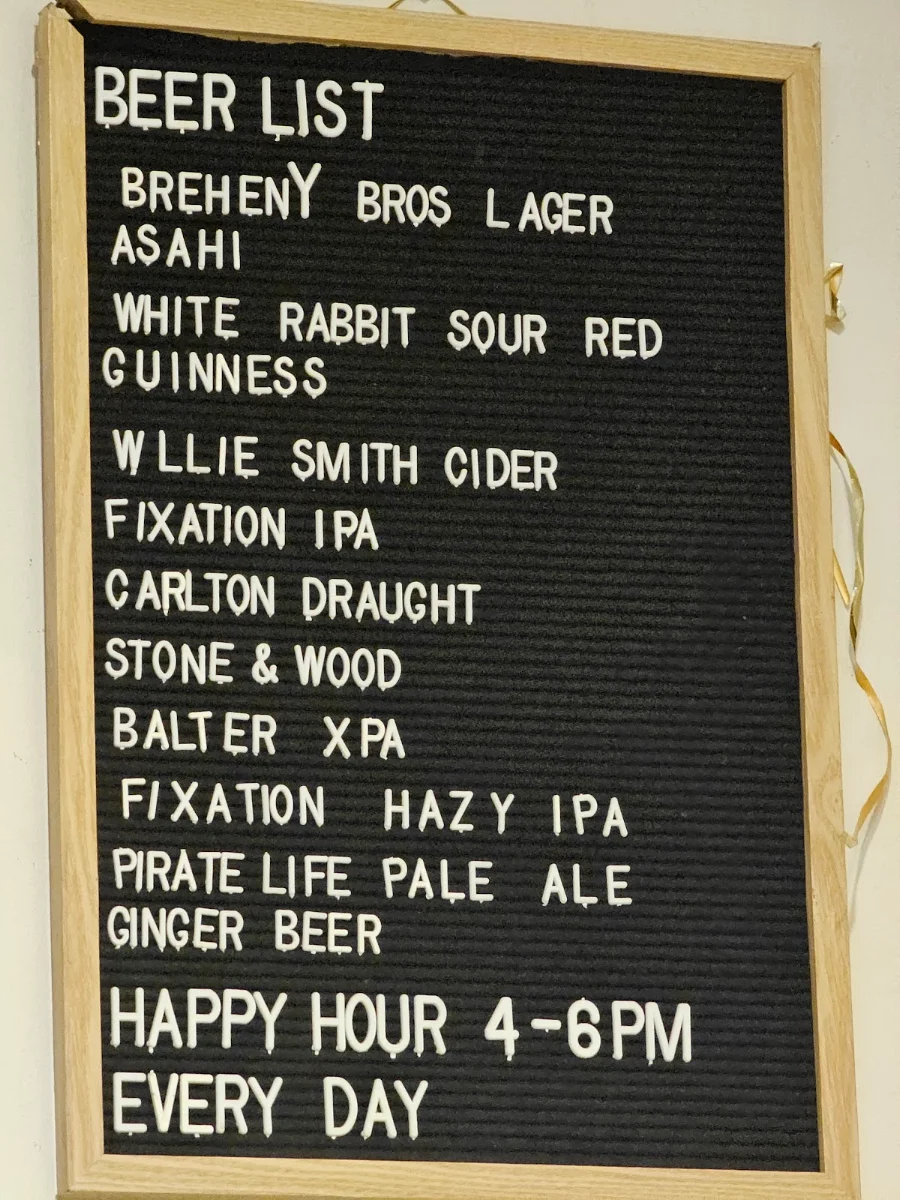 BEER LIST
BREHENY BROS LAGER
ASAHI
WHITE RABBIT SOUR RED
GUINNESS
WLLIE SMITH CIDER
FIXATION IPA
CARLTON DRAUGHT
STONE & WOOD
BALTER XPA
FIXATION HAZY IPA
PIRATE LIFE PALE ALE
GINGER BEER
HAPPY HOUR 4-6PM
EVERY DAY